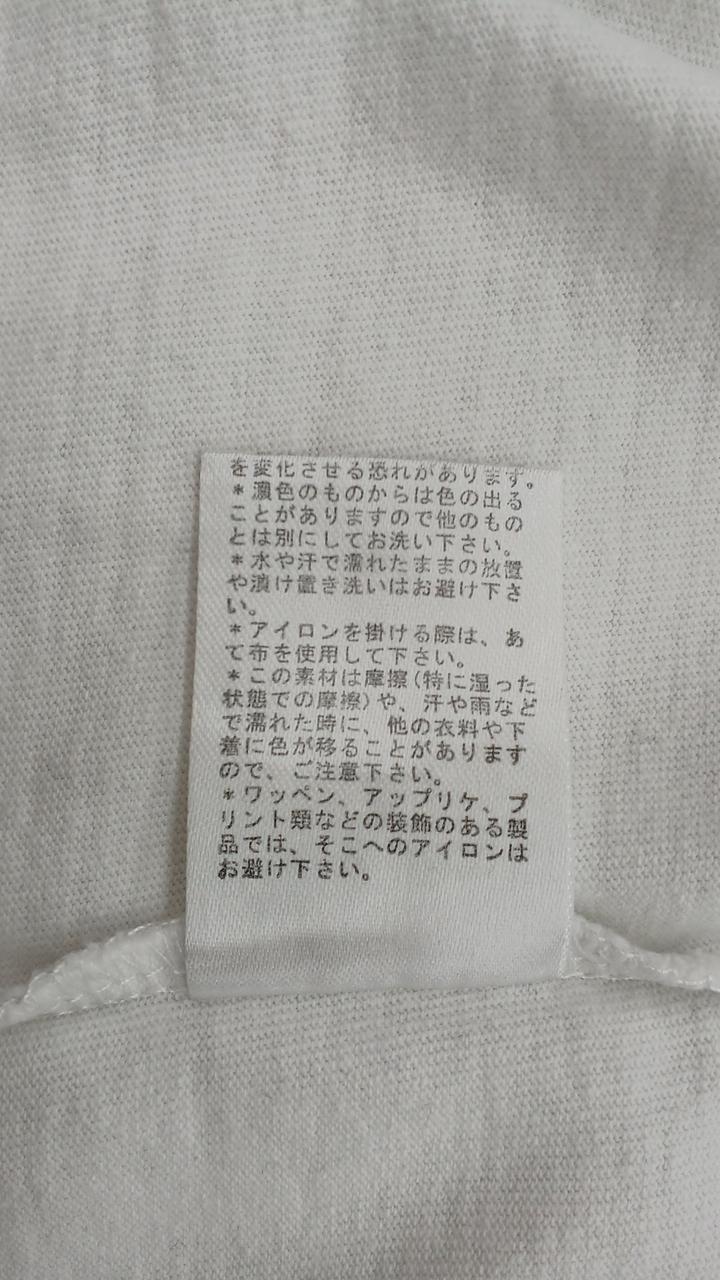 を変化させる恐れがあります。
*濃色のものからは色の出る
ことがありますので他のもの
とは別にしてお洗い下さい。
*水や汗で濡れたままの放置
や漬け置き洗いはお避け下さ
い。
*アイロンを掛ける際は、あ
て布を使用して下さい。
*この素材は摩擦(特に湿った
状態での摩擦)や、汗や雨など
で濡れた時に、他の衣料や下
着に色が移ることがあります
ので、ご注意下さい。
*ワッペン、アップリケ、プ
リント類などの装飾のある製
品では、そこへのアイロンは
お避け下さい。